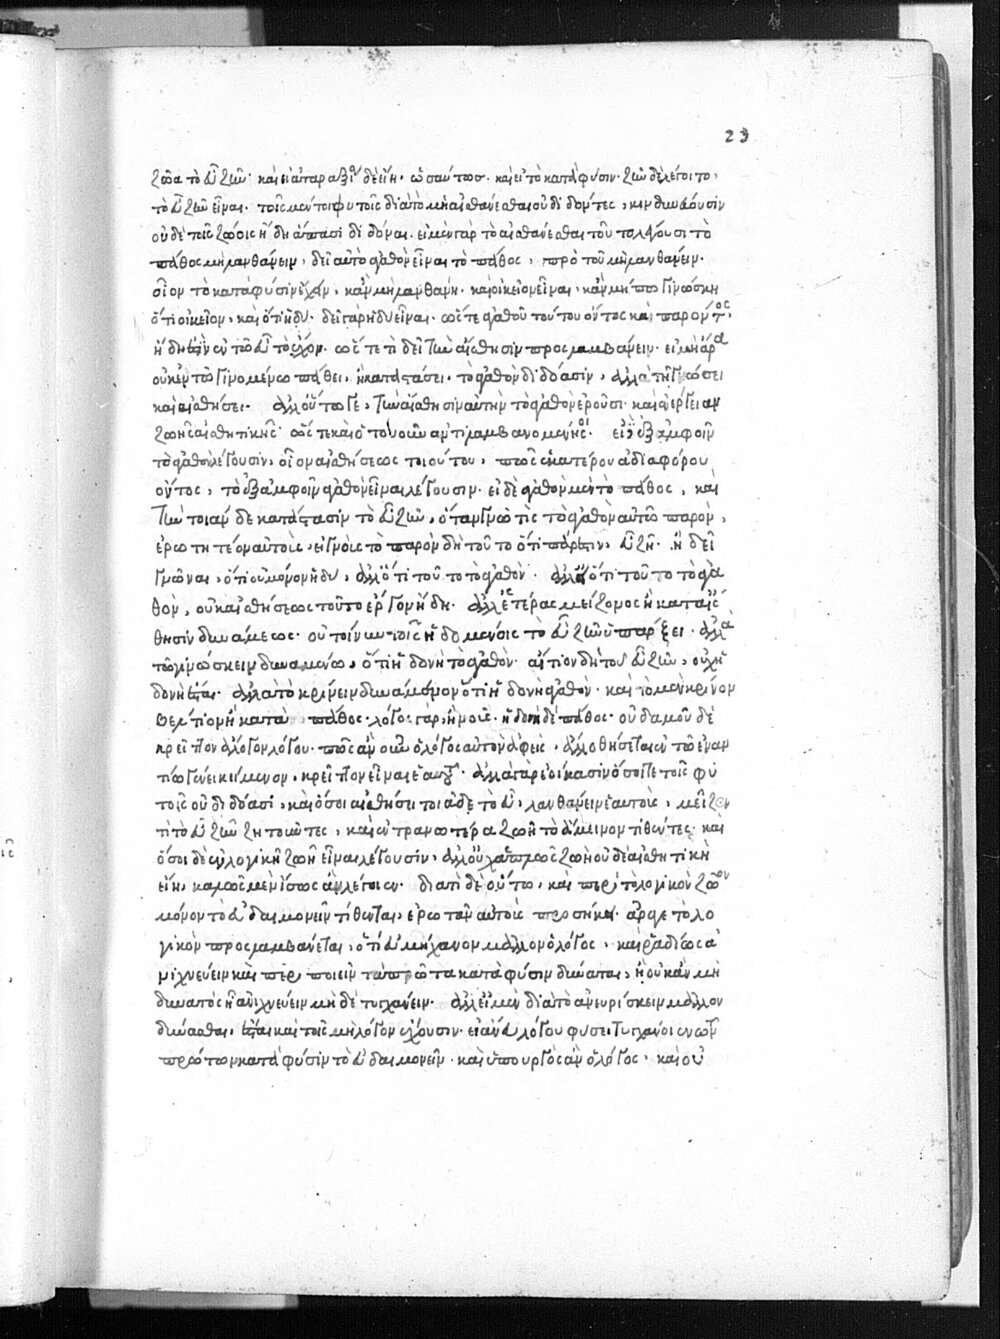 23
ζῶα τὸ εὖ ζῆν· καὶ εἰ ἀταραξία δὲ εἴη· ὡσαύτως· καὶ εἰ τὸ κατὰ φύσιν ζῆν δὲ λέγοιτο,
τὸ εὖ ζῆν εἶναι· τοῖς μέντοι φυτοῖς διὰ τὸ μὴ αἰσθάνεσθαι οὐ διδόντες, κινδυνεύουσιν
οὐδὲ τοῖς ζώοις ἤδη ἅπασι διδόναι. εἰ μὲν γὰρ τὸ αἰσθάνεσθαι τοῦτο λέγουσι τὸ
πάθος μὴ λανθάνειν, δεῖ αὐτὸ ἀγαθὸν εἶναι τὸ πάθος, πρὸ τοῦ μὴ λανθάνειν·
οἷον τὸ κατὰ φύσιν ἔχειν, κἂν μὴ λανθάνῃ· καὶ οἰκεῖον εἶναι, κἂν μήπω γινώσκῃ
ὅτι οἰκεῖον, καὶ ὅτι ἡδύ· δεῖ γὰρ ἡδὺ εἶναι· ὥστε ἀγαθοῦ τούτου ὄντος καὶ παρόντος,
ἤδη ἐστὶν ἐν τῷ εὖ τὸ ἔχον. ὥστε τί δεῖ τὴν αἴσθησιν προσλαμβάνειν· εἰ μὴ ἄρα
οὐκέτι τῷ γινομένῳ πάθει, ἢ καταστάσει, τὸ ἀγαθὸν διδόασιν, ἀλλὰ τῇ γνώσει
καὶ αἰσθήσει· ἀλλ' οὕτω γε, τὴν αἴσθησιν αὐτὴν τὸ ἀγαθὸν ἐροῦσι· καὶ ἐνέργειαν
ζωῆς αἰσθητικῆς· ὥστε καὶ ὁτουοῦν ἀντιλαμβανομένοις· εἰ δ' ἐξ ἀμφοῖν
τὸ ἀγαθὸν λέγουσιν, οἷον αἰσθήσεως τοιούτου, πῶς ἑκατέρου ἀδιαφόρου
ὄντος, τὸ ἐξ ἀμφοῖν ἀγαθὸν εἶναι λέγουσιν· εἰ δὲ ἀγαθὸν μὲν τὸ πάθος, καὶ
τὴν τοιάνδε κατάστασιν τὸ εὖ ζῆν, ὅταν γνῷ τις τὸ ἀγαθὸν αὐτῷ παρὸν,
ἐρωτητέον αὐτοὺς, εἰ γνοὺς τὸ παρὸν δὴ τοῦτο ὅτι πάρεστιν, εὖ ζῇ· ἢ δεῖ
γνῶναι, ὅτι οὐ μόνον ἡδὺ, ἀλλ' ὅτι τοῦτο τὸ ἀγαθὸν· ἀλλ' εἰ ὅτι τοῦτο τὸ ἀγα
θὸν, οὐκ αἰσθήσεως τοῦτο ἔργον ἤδη· ἀλλ' ἑτέρας μείζονος ἢ κατ' αἴσ
θησιν δυνάμεως· οὐ τοίνυν τοῖς ἡδομένοις τὸ εὖ ζῆν ὑπάρξει· ἀλλὰ
τῷ γινώσκειν δυναμένῳ, ὅτι ἡδονὴ τὸ ἀγαθὸν· αἴτιον δὴ τοῦ εὖ ζῆν, οὐχ ἡ
δονὴ ἔσται· ἀλλὰ τὸ κρίνειν δυνάμενον ὅτι ἡδονὴ ἀγαθὸν· καὶ τὸ μὲν κρῖνον
βέλτιον ἢ κατὰ πάθος· λόγος γὰρ, ἢ νοῦς· ἡδονὴ δὲ πάθος· οὐδαμοῦ δὲ
κρεῖττον ἄλογον λόγου· πῶς ἂν οὖν ὁ λόγος αὑτὸν ἀφεὶς, ἄλλο θήσεται ἐν τῷ ἐναν
τίῳ γένει κείμενον, κρεῖττον εἶναι ἑαυτοῦ· ἀλλὰ γὰρ ἐοίκασιν ὅσοι τε τοῖς φυ
τοῖς οὐ διδόασι, καὶ ὅσοι αἰσθήσει τοιᾷδε τὸ εὖ, λανθάνειν ἑαυτοὺς, μεῖζον
τι τὸ εὖ ζῆν ζητοῦντες, καὶ ἐν τρανωτέρᾳ ζωῇ τὸ ἄμεινον τιθέντες· καὶ
ὅσοι δὲ ἐν λογικῇ ζωῇ εἶναι λέγουσιν, ἀλλ' οὐχ ἁπλῶς ζωῇ οὐδὲ αἰσθητικῇ
εἴη, καλῶς μὲν ἴσως ἂν λέγοιεν· διατί δὲ οὕτω, καὶ περὶ τὸ λογικὸν ζῷον
μόνον τὸ εὐδαιμονεῖν τίθενται, ἐρωτᾶν αὐτοὺς προσήκει· ἆρά γε τὸ λο
γικὸν προσλαμβάνεται, ὅτι εὐμήχανον μᾶλλον ὁ λόγος, καὶ ῥᾳδίως ἀ
νιχνεύειν καὶ περιποιεῖν τὰ πρῶτα κατὰ φύσιν δύναται, ἢ οὐκ ἂν μὴ
δυνατὸς ᾖ ἀνιχνεύειν μὴ δὲ τυγχάνειν· ἀλλ' εἰ μὲν διὰ τὸ ἀνευρίσκειν μᾶλλον
δύνασθαι, ἔσται καὶ τοῖς μὴ λόγον ἔχουσιν· εἰ ἄνευ λόγου φύσει τυγχάνοιεν τῶν
πρώτων κατὰ φύσιν τὸ εὐδαιμονεῖν· καὶ ὑπουργὸς ἂν ὁ λόγος, καὶ οὐ